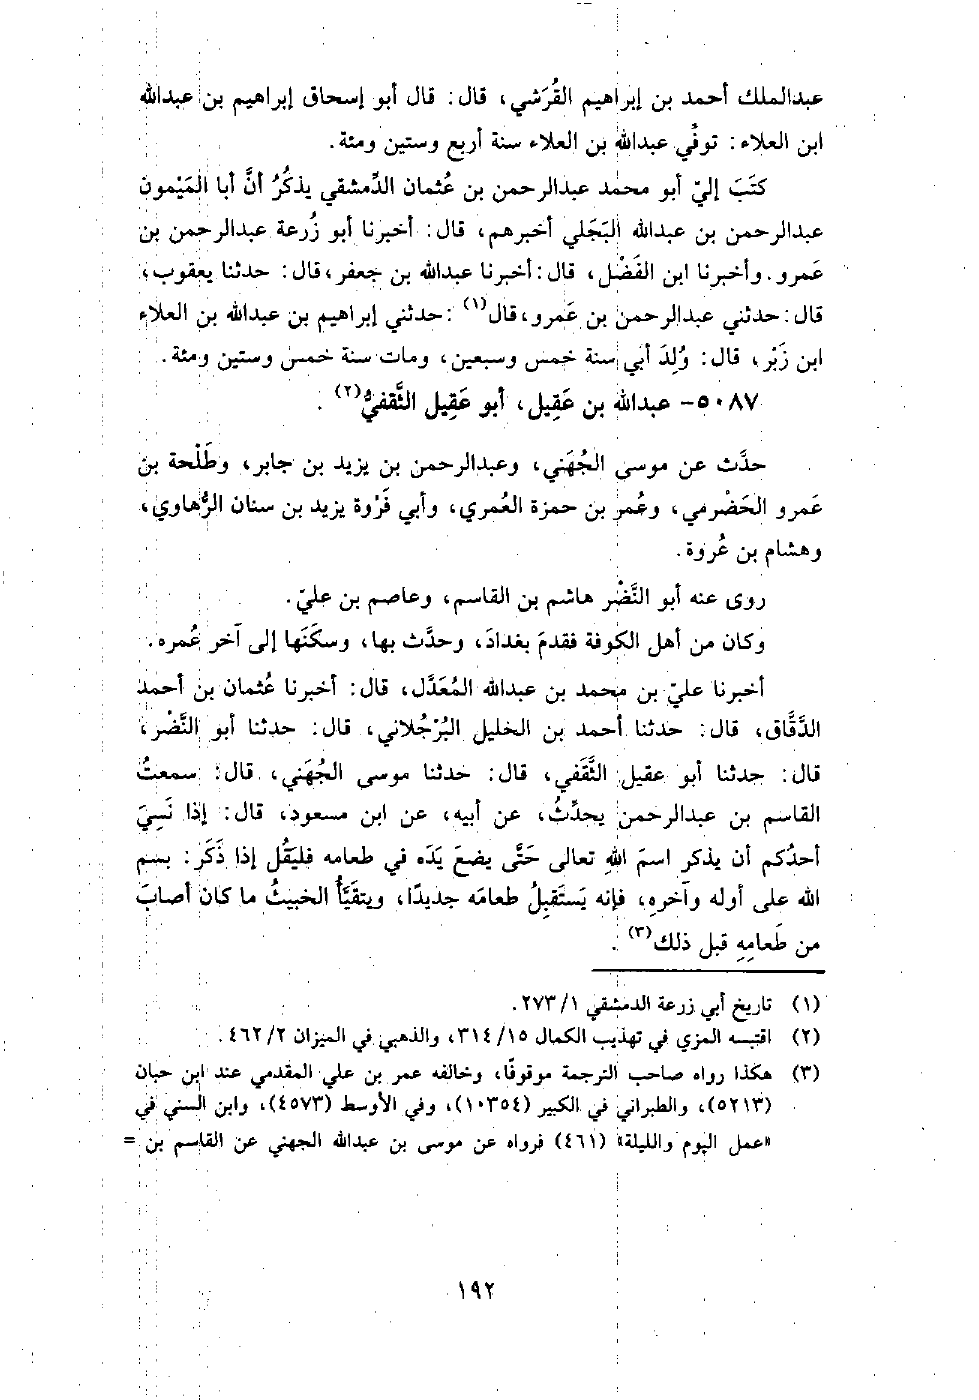 عبدالملك أحمد بن إبراهيم القُرَشي، قال: قال أبو إسحاق إبراهيم بن عبدالله
ابن العلاء: توفُي عبدالله بن العلاء سنة أربع وستين ومئة.
كتَبَ إليّ أبو محمد عبدالرحمن بن عُثمان الدِّمشقي يذكُرُ أنَّ أبا المَيْمون
عبدالرحمن بن عبدالله البَجَلي أخبرهم، قال: أخبرنا أبو زُرعة عبدالرحمن بن
عَمرو. وأخبرنا ابن الفَضْل، قال: أخبرنا عبدالله بن جعفر، قال: حدثنا يعقوب،
قال: حدثني عبدالرحمن بن عَمرو، قال(١): حدثني إبراهيم بن عبدالله بن العلاء
ابن زَبْر، قال: وُلِدَ أبي سنة خمس وسبعين، ومات سنة خمس وستين ومئة.
٥٠٨٧- عبدالله بن عَقِيل، أبو عَقِيل الثَّقفيُّ(٢).
حدَّث عن موسى الجُهَني، وعبدالرحمن بن يزيد بن جابر، وطَلْحة بن
عَمرو الحَضْرمي، وعُمر بن حمزة العُمري، وأبي فَرْوة يزيد بن سنان الرُّهاوي،
وهشام بن عُروة.
روى عنه أبو النَّضْر هاشم بن القاسم، وعاصم بن عليّ.
وكان من أهل الكوفة فقدمَ بغدادَ، وحدَّث بها، وسكَنَها إلى آخر عُمره.
أخبرنا عليّ بن محمد بن عبدالله المُعَدَّل، قال: أخبرنا عُثمان بن أحمد
الدَّقَّاق، قال: حدثنا أحمد بن الخليل البُرْجُلاني، قال: حدثنا أبو النَّضْر،
قال: حدثنا أبو عقيل الثَّقَفي، قال: حدثنا موسى الجُهَني، قال: سمعتُ
القاسم بن عبدالرحمن يحدِّثُ، عن أبيه، عن ابن مسعود، قال: إذا نَسِيَ
أحدُكم أن يذكر اسمَ اللهِ تعالى حَتَّى يضعَ يَدَه في طعامه فليَقُل إذا ذَكَر: بسم
الله على أوله وآخرهِ، فإنه يَستَقبِلُ طعامَه جديدًا، ويتقيَّأُ الخبيثُ ما كان أصابَ
من طَعامِهِ قبل ذلك(٣).
(١) تاريخ أبي زرعة الدمشقي ١/ ٢٧٣.
(٢) اقتبسه المزي في تهذيب الكمال ١٥/ ٣١٤، والذهبي في الميزان ٢/ ٤٦٢.
(٣) هكذا رواه صاحب الترجمة موقوفًا، وخالفه عمر بن علي المقدمي عند ابن حبان
(٥٢١٣)، والطبراني في الكبير (١٠٣٥٤)، وفي الأوسط (٤٥٧٣)، وابن السني في
«عمل اليوم والليلة» (٤٦١) فرواه عن موسى بن عبدالله الجهني عن القاسم بن =
١٩٢